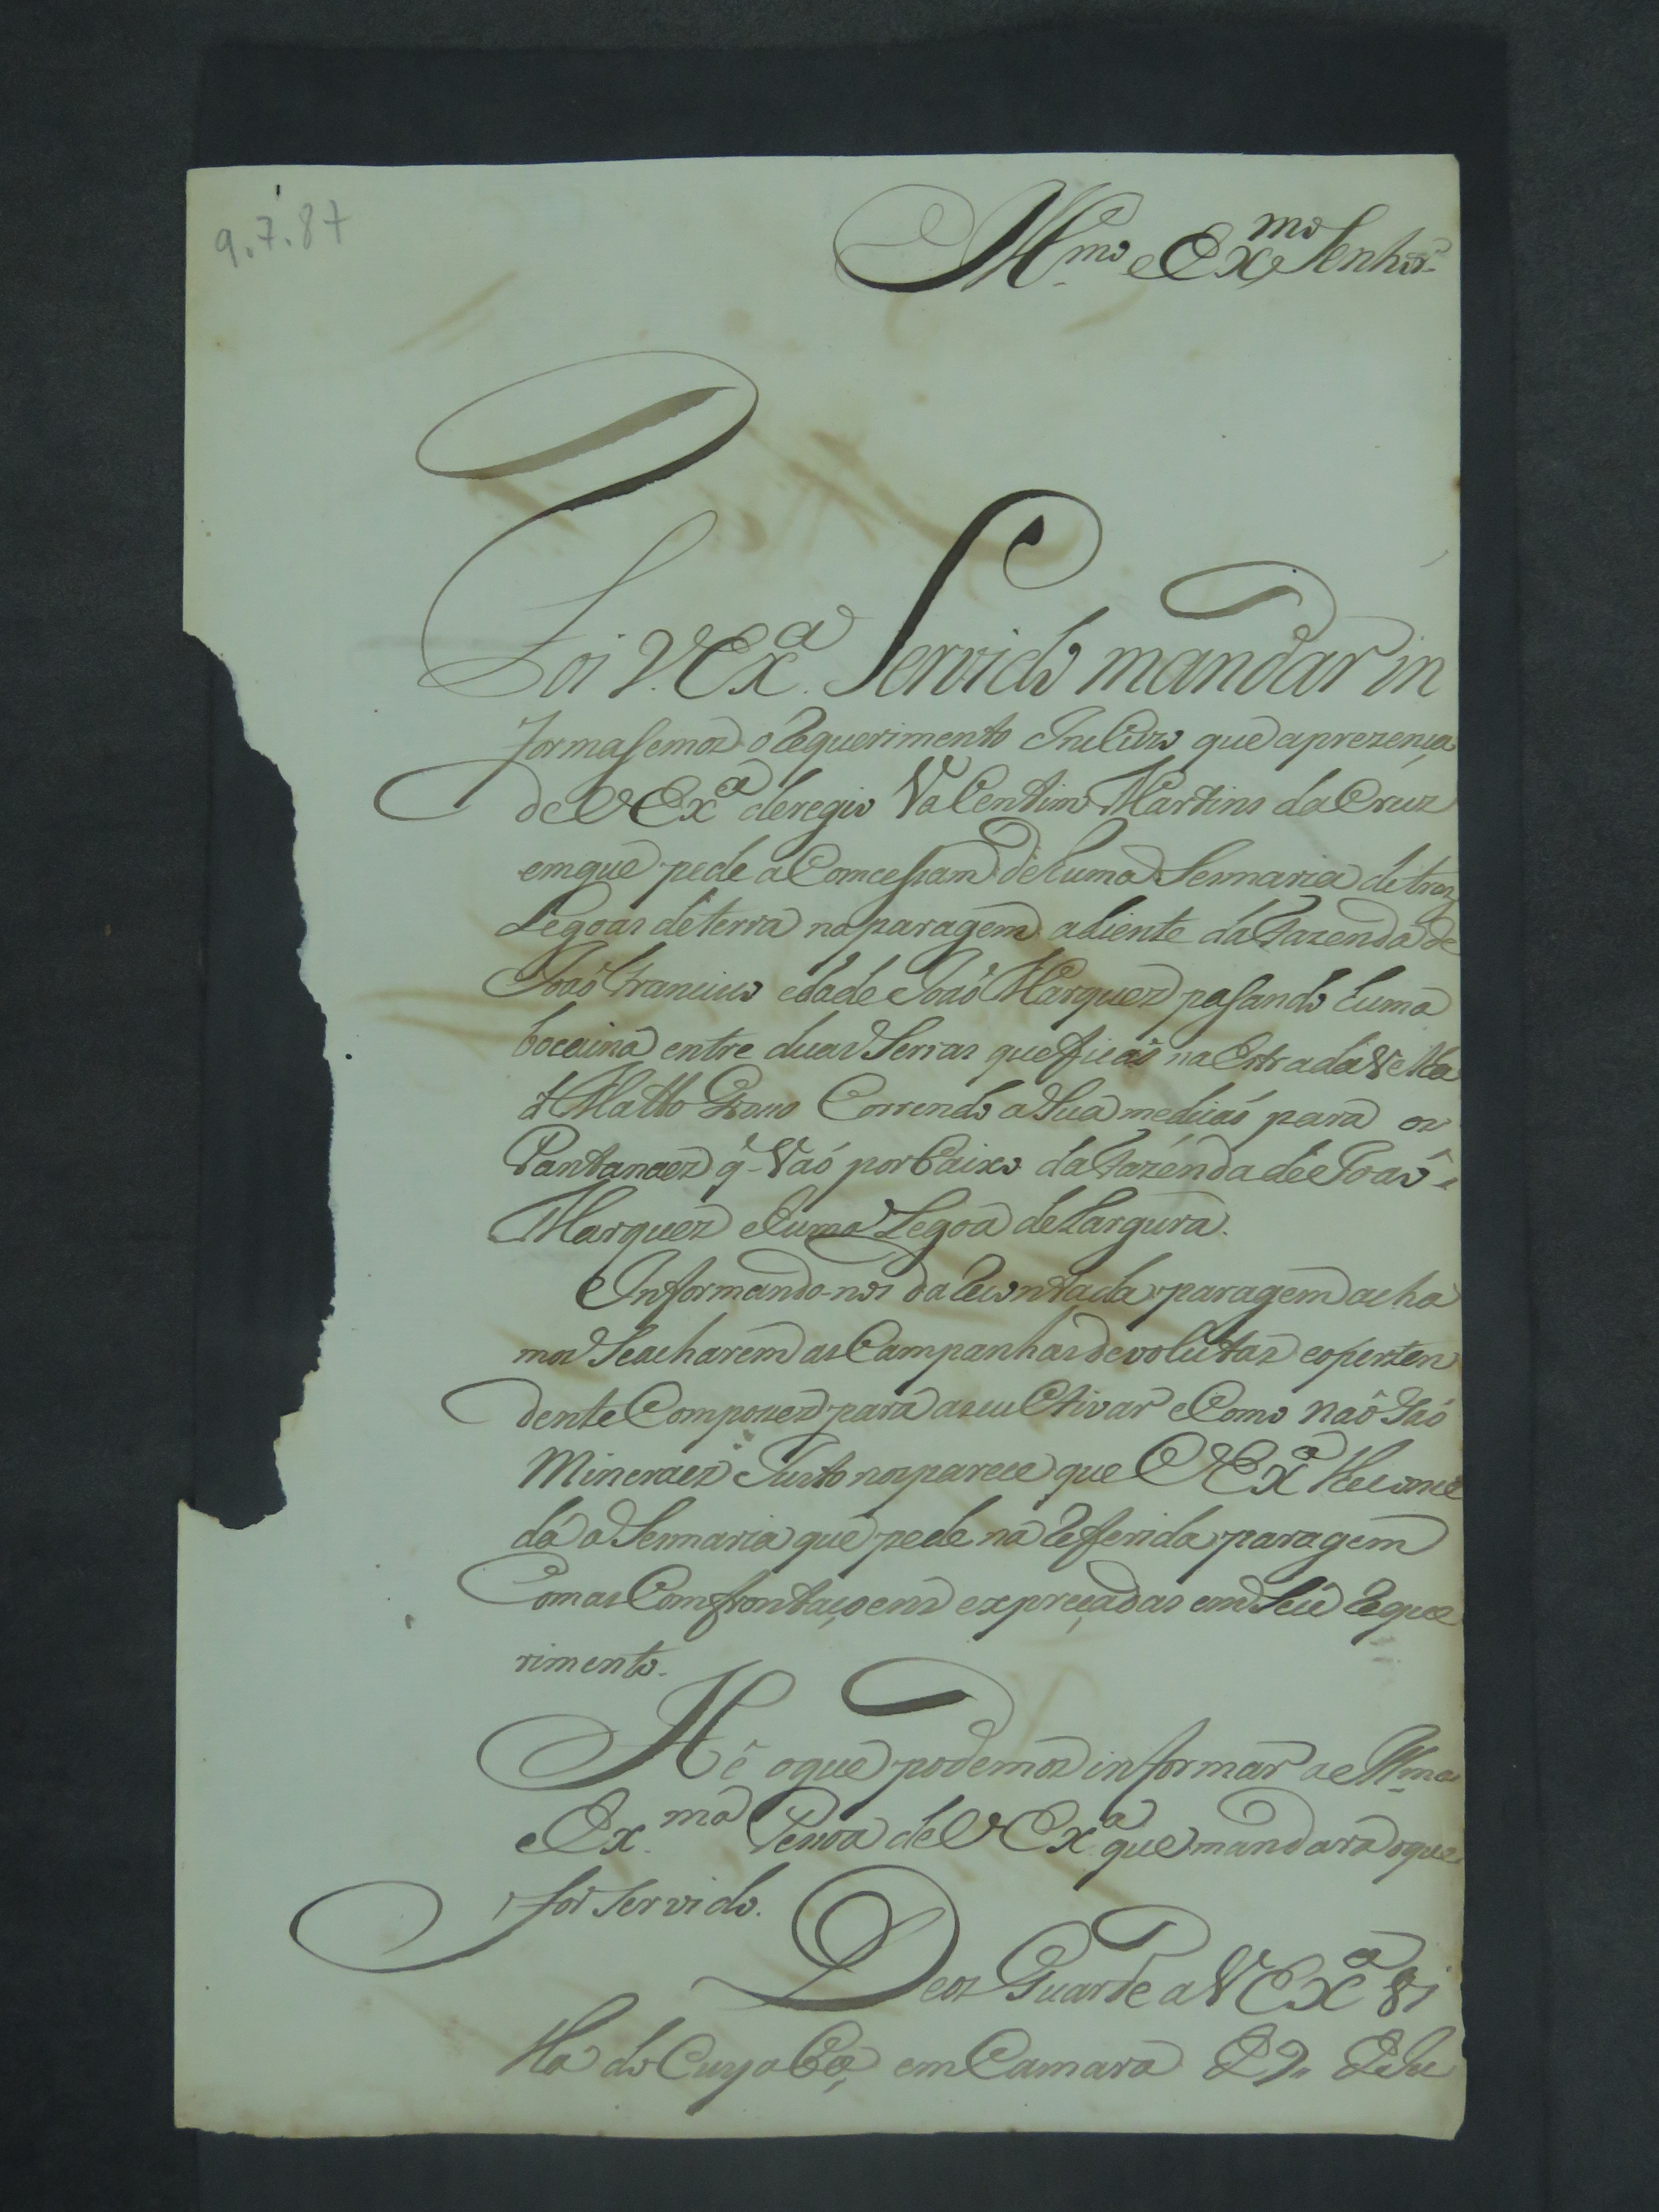 9.7.87
Ill.mo e Ex.mo Senhor
Foi V. Ex.a Servido mandar in
formasemos o Requerimento Incluzo que aprezença
de V Ex.a deregio Valentim Martins da Cruz
emque pede a Comcessam de huma Sesmaria de tres
Legoas de terra na paragem adiente da Fazenda de
Joaõ Francisco eda de Joaõ Marquez pasando huma
bocaina entre duas Serras que ficaõ na Estrada Velha
d Matto Groso Correndo a Sua mediçaõ para os
Pantanaez q̃ Vaõ por baixo da Fazenda de Joaõ
Marquez e huma Legoa de Largura.
Informando-nos da Recontada paragem acha
mos Seacharem as Campanhas devolutas eopertten
dente Com posses para as cultivar e Como naõ Saõ
Mineraes Justo nos parece que V Ex.a lhe conce
da a Sesmaria que pede na Refferida paragem
Com as Comfrontaçoens expreçadas em Seu Reque
rimento.
He oque podemos informar a Ill.ma
e Ex.ma Pesoa de V Ex.a que mandará oque
for Servido.
Deos Guarde a V Ex.a Vi
lla do Cuyabá, em Camara de 9 de Ju